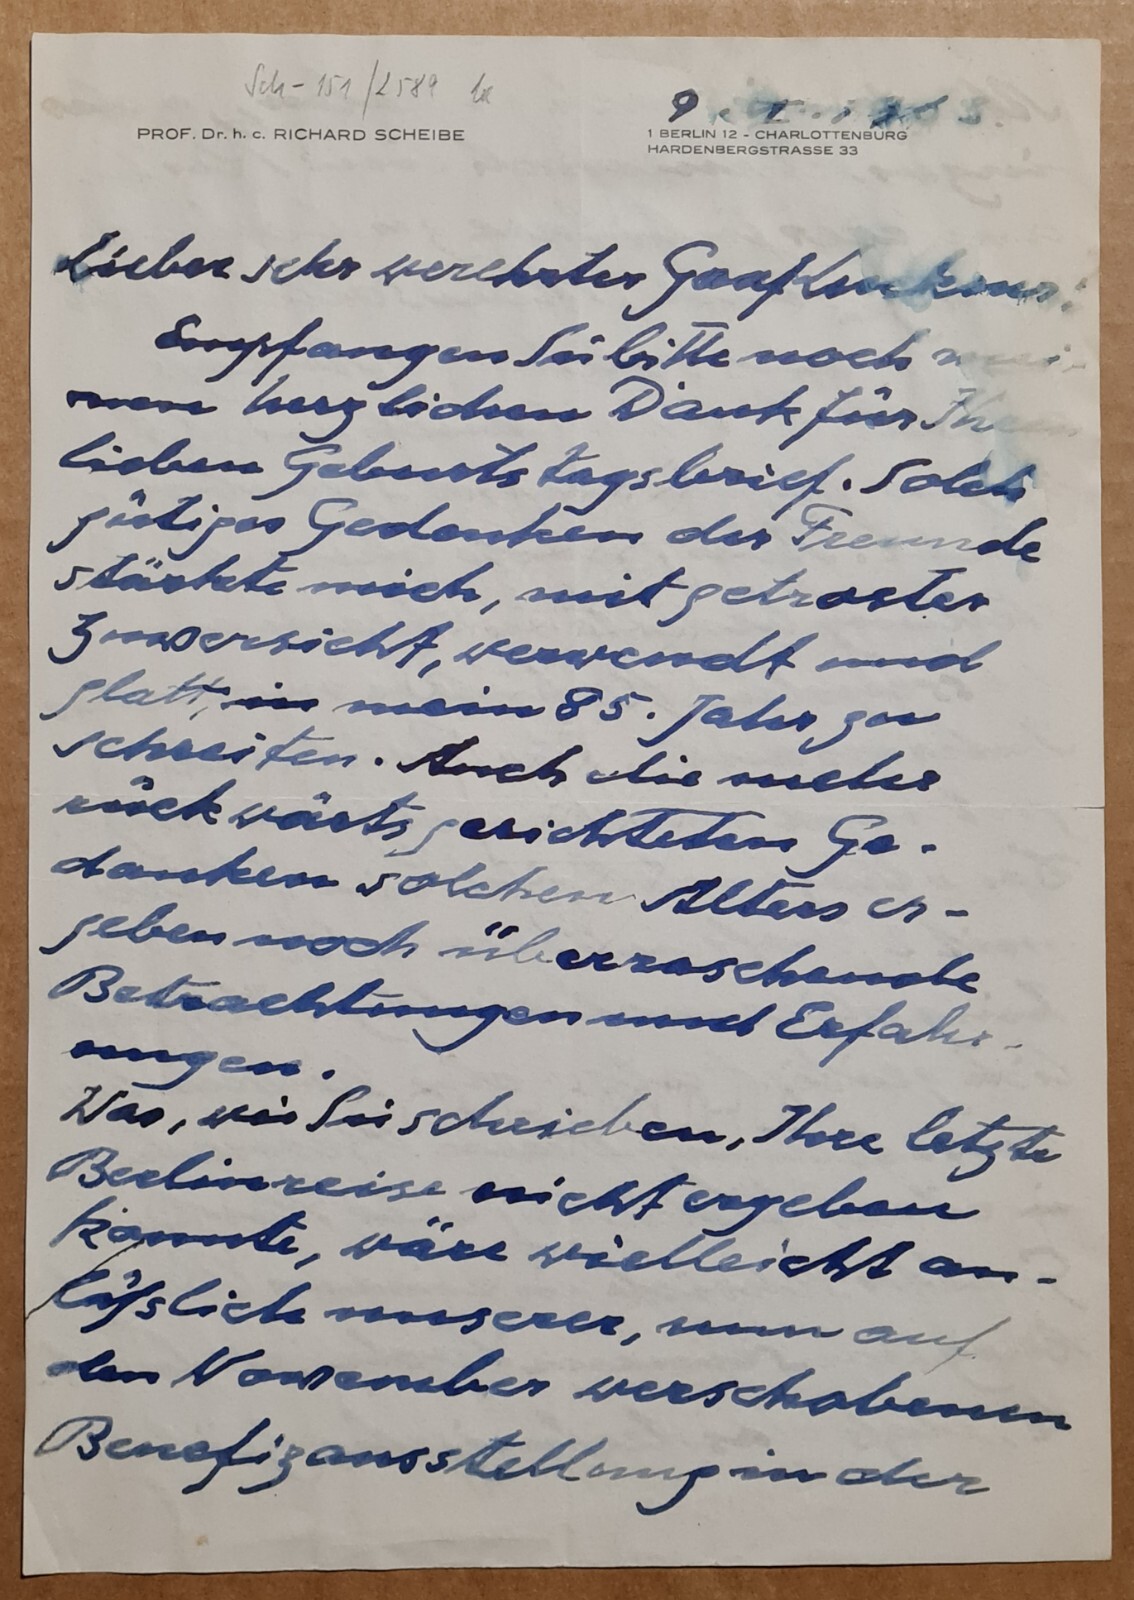 Sch-151/2589
PROF. Dr. h. c. RICHARD SCHEIBE
1 BERLIN 12 - CHARLOTTENBURG
HARDENBERGSTRASSE 33
Lieber sehr verehrter Graf Luckner!
Empfangen Sie bitte noch mei-
nen herzlichen Dank für Ihren
lieben Geburtstagsbrief. Solch
gütiges Gedenken der Freunde
stärkte mich, mit getroster
Zuversicht, verwendt und
glatt, in mein 85. Jahr zu
schreiten. Auch die mehr
rückwärts gerichteten Ge-
danken solchen Alters er-
geben noch überraschende
Betrachtungen und Erfahr-
ungen.
Was, wie Sie schrieben, Ihre letzte
Berlinreise nicht ergeben
konnte, wäre vielleicht an-
läßlich unserer, nun auf
den November verschobenen
Benefizausstellung in der